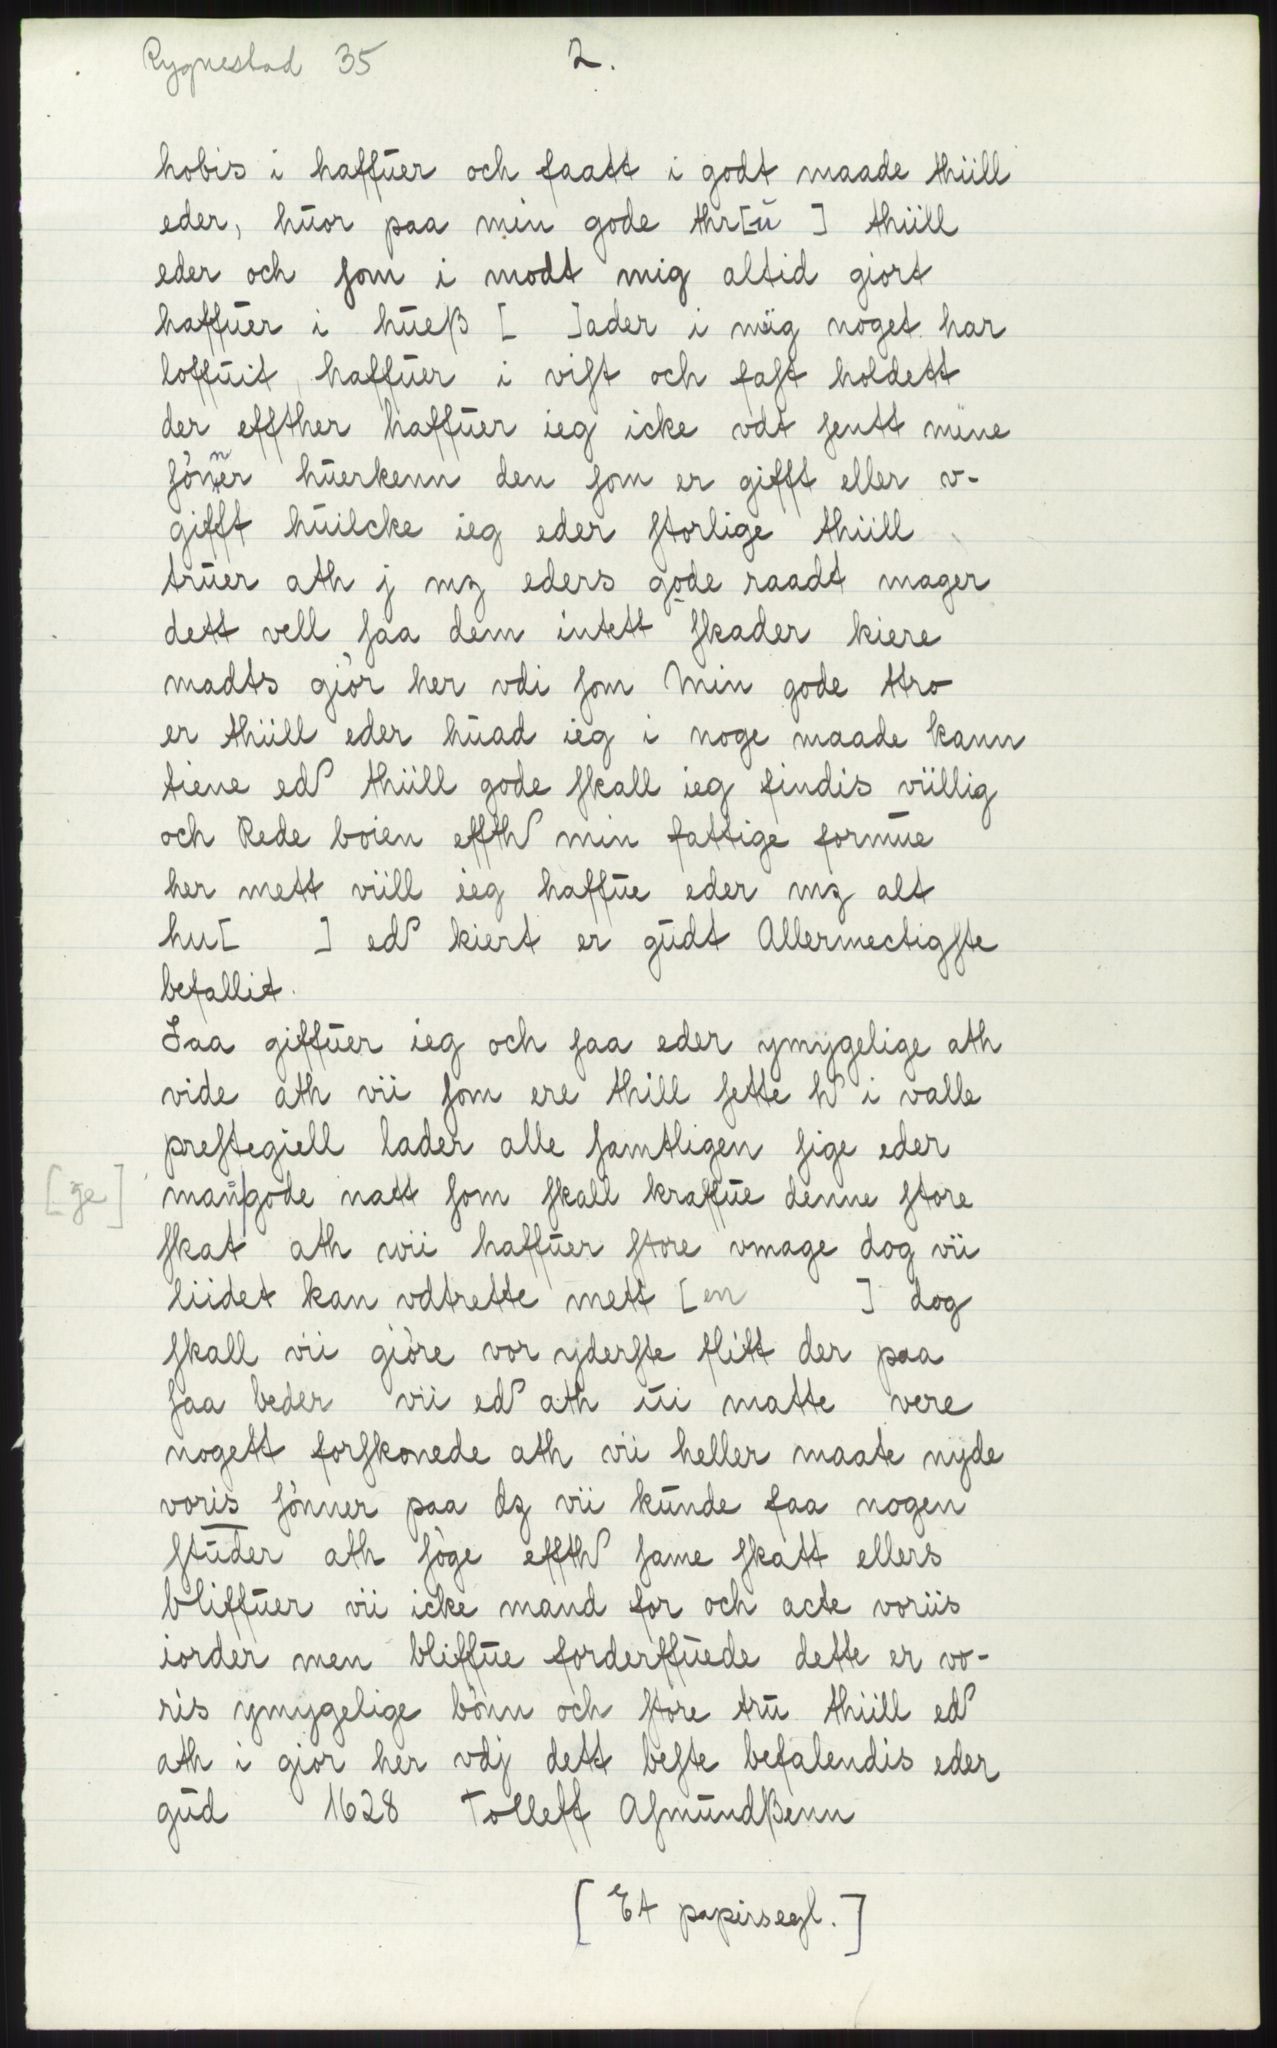 Rygnestad 35 2.
hobis i haffuer och faatt i godt maade thiill
eder, huor paa min gode thr[ü ] thiill
eder och som i modt mig altid giort
haffuer i hueß [ ]ader i mig noget har
loffuit haffuer i vist och fast holdett
der effther haffuer ieg icke vdt sentt mine
sönner huerkenn den som er gifft eller v-
gifft huilcke ieg eder storlige thiill
truer ath j mz eders gode raadt mager
dett vell saa dem intett skader kiere
madts giör her vdi som Min gode ttro
er thiill eder huad ieg i noge maade kann
tiene ed thiill gode skall ieg findis viillig
och Rede boien effth min fattige formue
her mett viill ieg haffue eder mz alt
hu[ ] ed kiert er gudt Allermectigste
befallit.
Saa giffuer ieg och saa eder ymygelige ath
vide ath vii som ere thill sette h i valle
prestegiell lader alle samtligen sige eder
[ge] mañgode natt som skall kraffue denne store
skat ath wii haffuer store vmage dog vii
liidet kan vdtrette mett [en ] dog
skall vii giöre vor yderste flitt der paa
saa beder vii ed ath ui matte vere
nogett forskonede ath vii heller maate nyde
voris sönner paa dz vii kunde faa nogen
studer ath söge effth same skatt ellers
bliffuer vii icke mand for och acte voriis
iorder men bliffue forderffuede dette er vo-
ris ymygelige bönn och store tru thiill ed
ath i giör her vdj dett beste befalendis eder
gud 1628 Tolleff Asmundßenn
[Et papirsegl.]